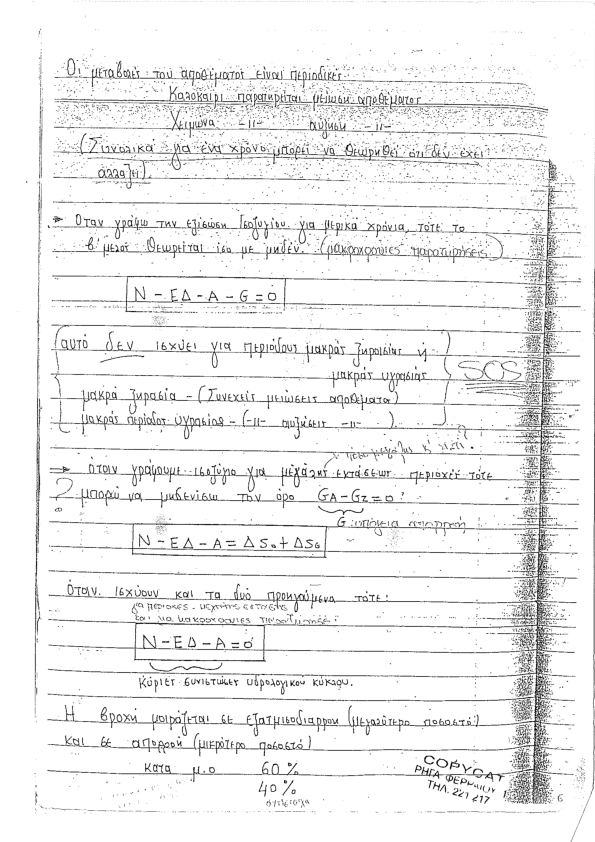 Οι μεταβολές του αποθέματος είναι περιοδικές
Καλοκαίρι παρατηρείται μείωση αποθέματος
Χειμώνα -॥- αύξηση -॥-
(Συνολικά για ένα χρόνο μπορεί να θεωρηθεί ότι δεν έχει
αλλάξει).
Όταν γράφω την εξίσωση Ισοζυγίου για μερικά χρόνια, τότε το
β' μέλος θεωρείται ίσο με μηδέν. (μακροχρόνιες παρατηρήσεις)
N - ΕΔ - A - G = 0
(αυτό δεν ισχύει για περιόδους μακράς ξηρασίας ή
μακράς υγρασίας SOS
μακρά ξηρασία - (Συνεχείς μειώσεις αποθέματα)
μακράς περίοδος υγρασίας - (-॥- αυξήσεις -॥- ).
πόσο μεγάλης κ' γιατί?
όταν γράφουμε ισοζύγιο για μεγάλης εκτάσεως περιοχές τότε
? μπορώ να μηδενίσω τον όρο GA - GZ = 0!
G: υπόγεια απορροή
N - ΕΔ - A = ΔS₀ + ΔSG
Όταν ισχύουν και τα δυο προηγούμενα τότε:
για περιοχές μεγάλης έκτασης
και για μακροχρόνιες παρατηρήσεις:
N - ΕΔ - A = 0
Κύριες συνιστώσες υδρολογικού κύκλου.
Η βροχή μοιράζεται σε εξατμισοδιαπνοή (μεγαλύτερο ποσοστό)
και σε απορροή (μικρότερο ποσοστό)
κατά μ.ο 60%
40%
COPYCAT
ΡΗΓΑ ΦΕΡΑΙΟΥ 1
ΤΗΛ. 221 217
6